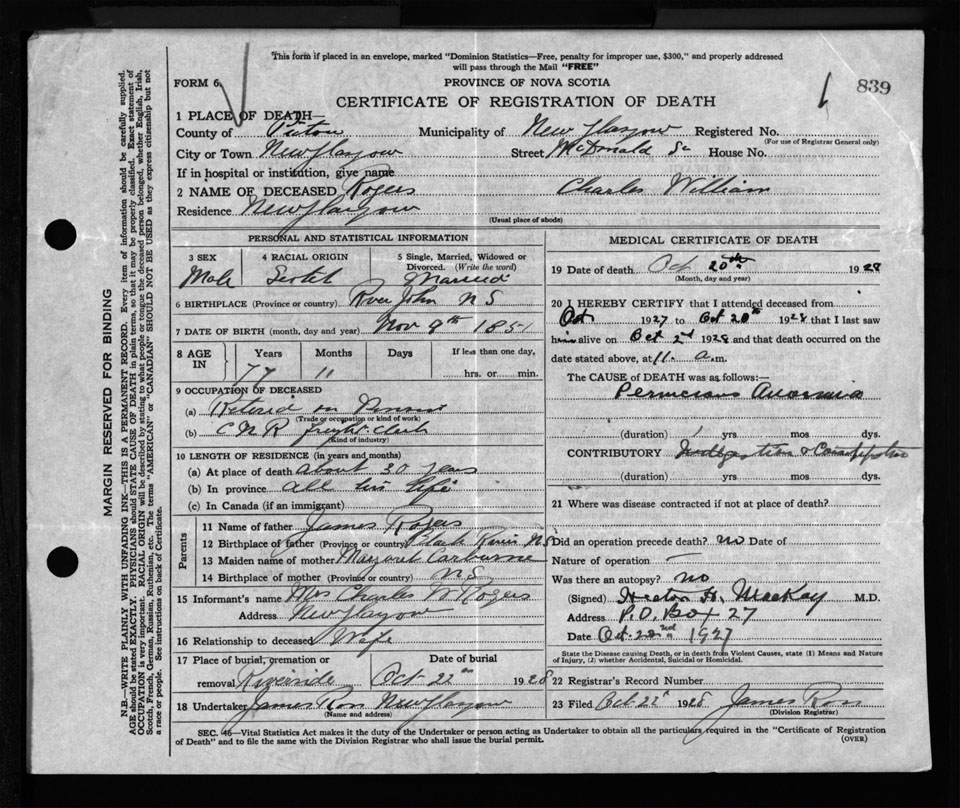 This form if placed in an envelope, marked "Dominion Statistics—Free, penalty for improper use, $300," and properly addressed
will pass through the Mail "FREE"
FORM 6. PROVINCE OF NOVA SCOTIA 839
CERTIFICATE OF REGISTRATION OF DEATH
1 PLACE OF DEATH—
County of Pictou Municipality of New Glasgow Registered No.
(For use of Registrar General only)
City or Town New Glasgow Street McDonald St House No.
If in hospital or institution, give name
2 NAME OF DECEASED Rogers Charles William
Residence New Glasgow
(Usual place of abode)
PERSONAL AND STATISTICAL INFORMATION
3 SEX 4 RACIAL ORIGIN 5 Single, Married, Widowed or
Divorced. (Write the word)
Male Scotch Married
6 BIRTHPLACE (Province or country) River John N S
7 DATE OF BIRTH (month, day and year) Nov 9th 1851
8 AGE IN Years Months Days If less than one day,
77 11 hrs. or min.
9 OCCUPATION OF DECEASED
(a) Retired on
(Trade or occupation or kind of work)
(b) C N R freight clerk
(Kind of industry)
10 LENGTH OF RESIDENCE (in years and months)
(a) At place of death about 30 years
(b) In province all his life
(c) In Canada (if an immigrant)
Parents
11 Name of father James Rogers
12 Birthplace of father (Province or country) Black River N S
13 Maiden name of mother Margaret
14 Birthplace of mother (Province or country) N S
15 Informant's name Mrs Charles W Rogers
Address New Glasgow
16 Relationship to deceased Wife
17 Place of burial, cremation or Date of burial
removal Riverside Oct 22nd 1928
18 Undertaker James Ross New Glasgow
(Name and address)
MEDICAL CERTIFICATE OF DEATH
19 Date of death Oct 20th 1928
(Month, day and year)
20 I HEREBY CERTIFY that I attended deceased from
Oct 1927 to Oct 20th 1928 that I last saw
him alive on Oct 2nd 1928 and that death occurred on the
date stated above, at 11. a.m.
The CAUSE of DEATH was as follows:—
Pernicious Anaemia
(duration) 1 yrs mos dys.
CONTRIBUTORY Indigestion & Constipation
(duration) yrs. mos. dys.
21 Where was disease contracted if not at place of death?
Did an operation precede death? no Date of
Nature of operation —
Was there an autopsy? no
(Signed) H. MacKay M.D.
Address P.O. Box 27
Date Oct. 22nd 1927
State the Disease causing Death, or in death from Violent Causes, state (1) Means and Nature
of Injury, (2) whether Accidental, Suicidal or Homicidal.
22 Registrar's Record Number
23 Filed Oct 22d 1928 James Ross
(Division Registrar)
SEC. 46—Vital Statistics Act makes it the duty of the Undertaker or person acting as Undertaker to obtain all the particulars required in the "Certificate of Registration
of Death" and to file the same with the Division Registrar who shall issue the burial permit.
(OVER)
MARGIN RESERVED FOR BINDING
N.B.—WRITE PLAINLY WITH UNFADING INK—THIS IS A PERMANENT RECORD. Every item of information should be carefully supplied.
AGE should be stated EXACTLY. PHYSICIANS should STATE CAUSE OF DEATH in plain terms, so that it may be properly classified. Exact statement of
OCCUPATION is very important. RACIAL ORIGIN will be described by stating to what people or tongue the deceased person belonged, whether English, Irish,
Scotch, French, German, Russian, Ruthenian, etc. The terms "AMERICAN" or "CANADIAN" SHOULD NOT BE USED as they express citizenship but not
a race or people. See instructions on back of Certificate.